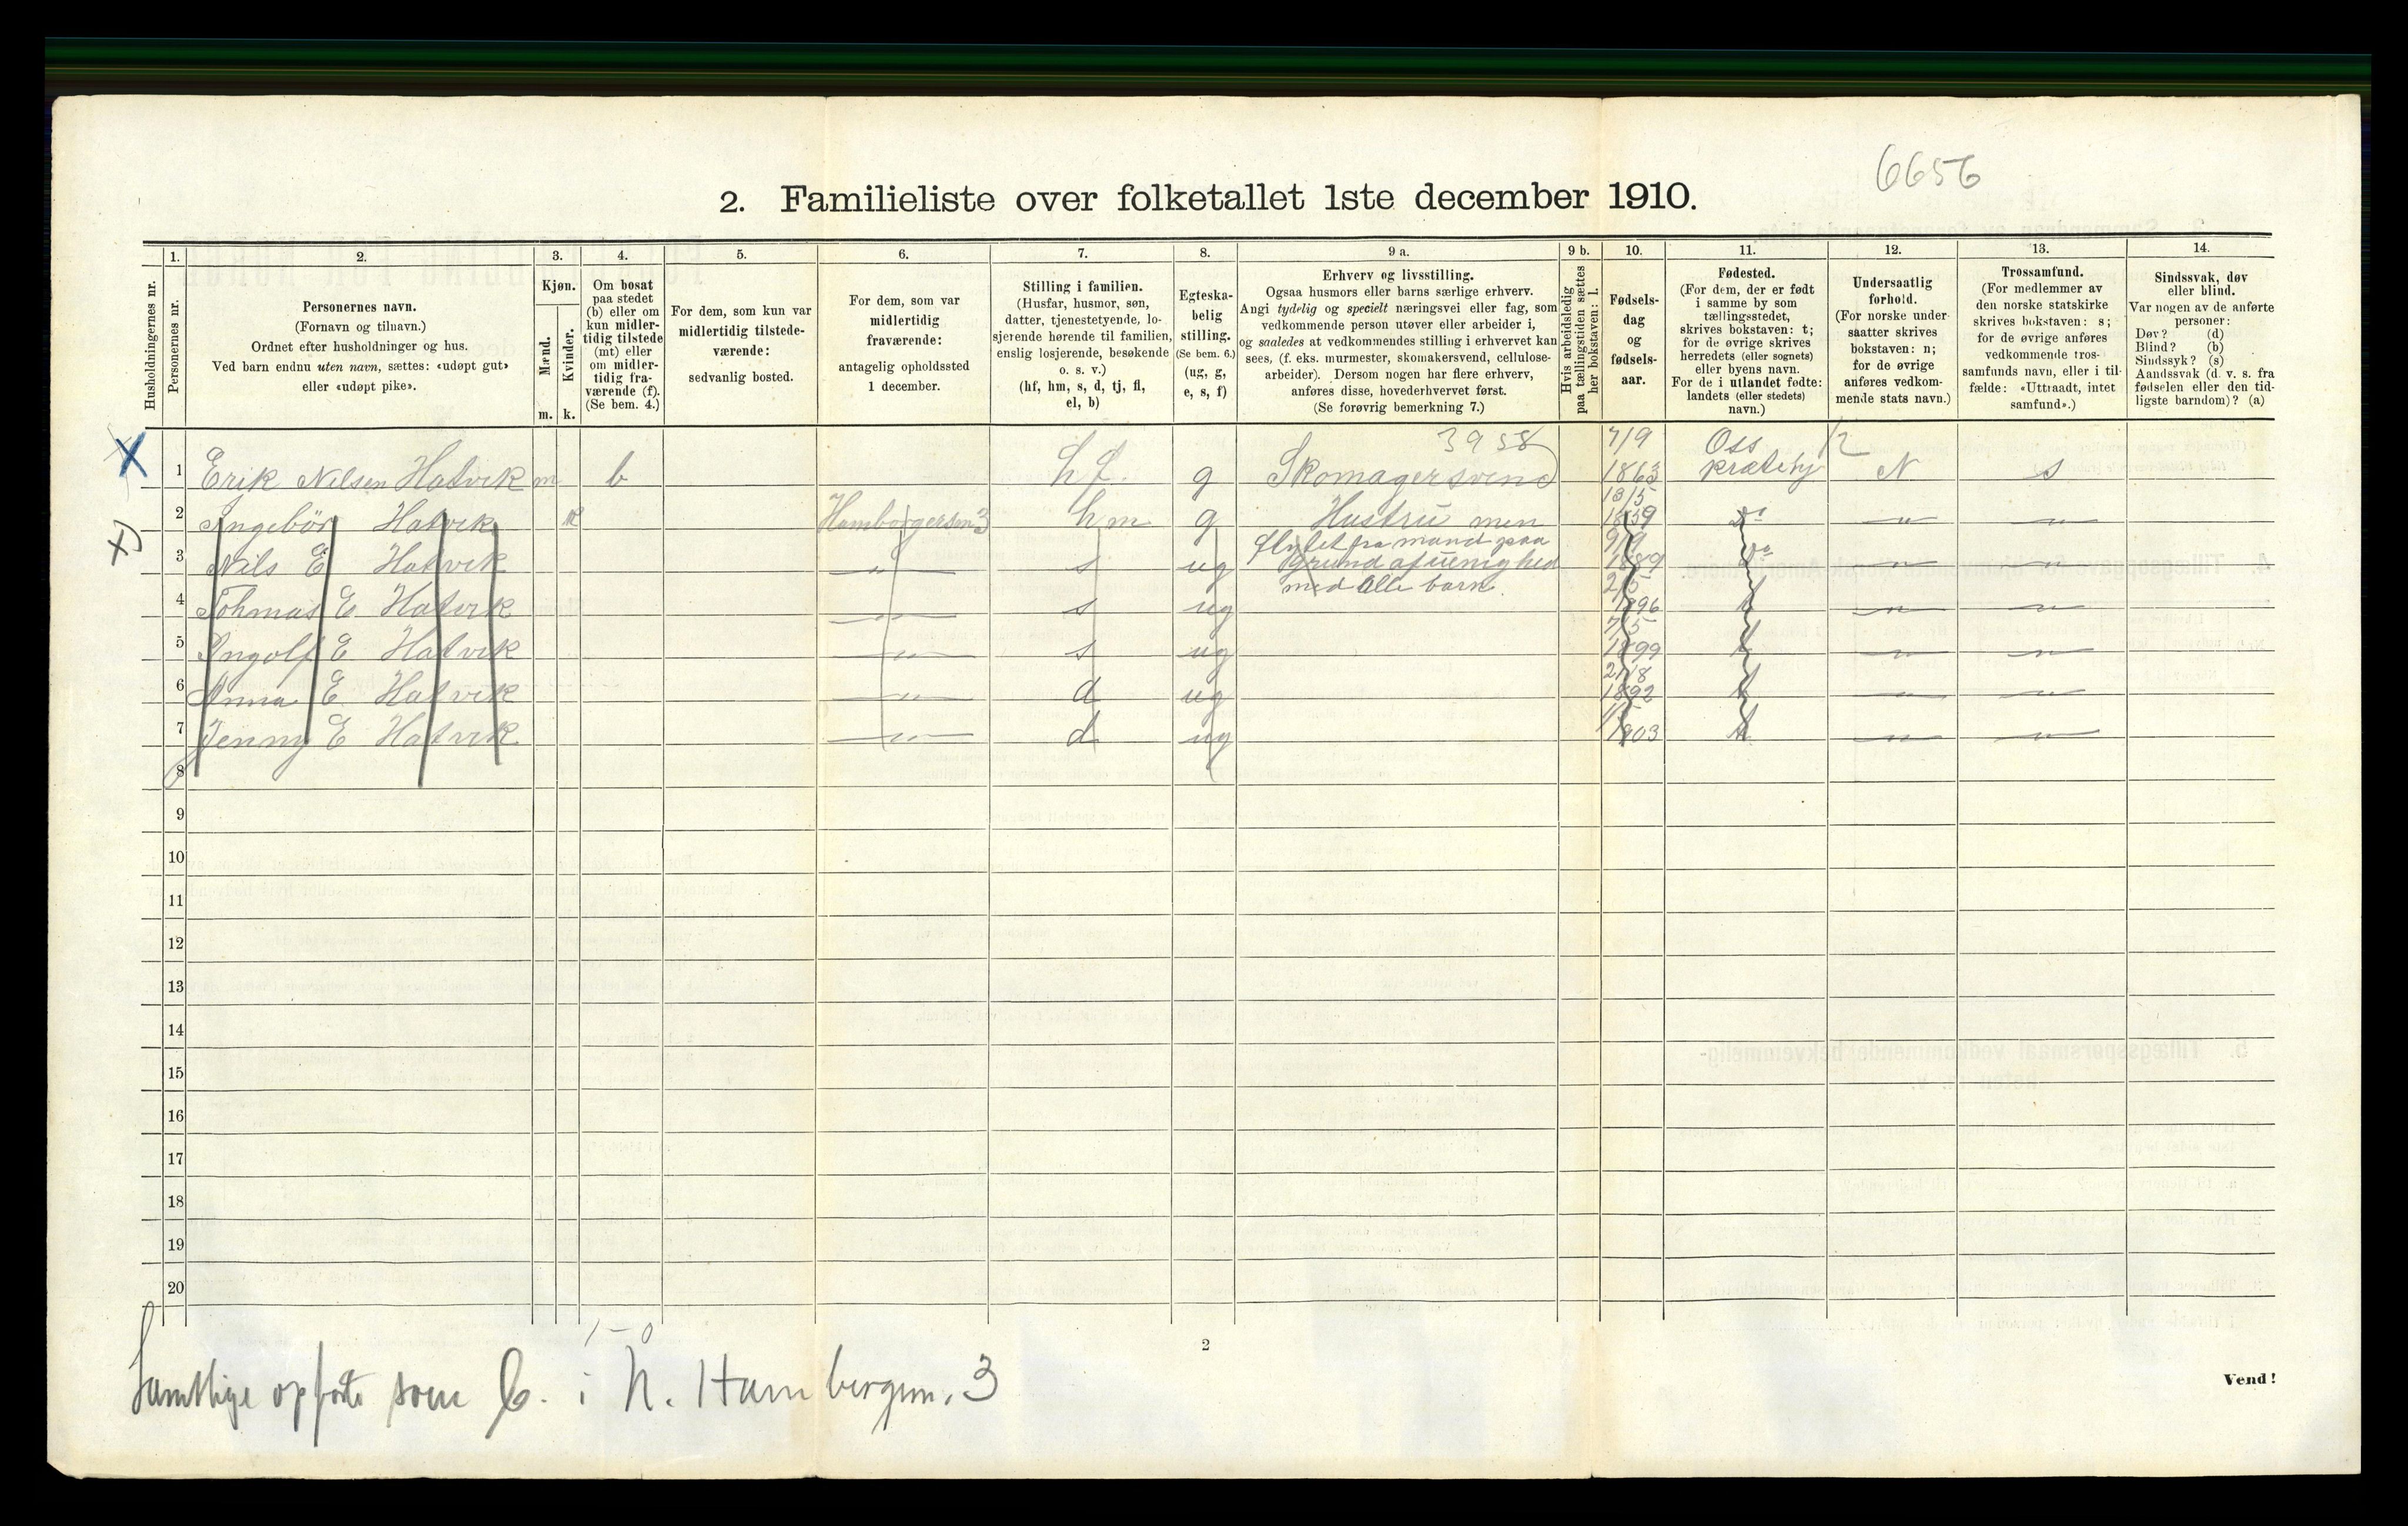 6656
2. Familieliste over folketallet 1ste december 1910.
1. 2. 3. 4. 5. 6. 7. 8. 9 a. 9 b. 10. 11. 12. 13. 14.
Husholdningernes nr.
Personernes nr.
Personernes navn.
(Fornavn og tilnavn.)
Ordnet efter husholdninger og hus.
Ved barn endnu uten navn, sættes: «udøpt gut»
eller «udøpt pike».
Kjøn.
Mænd.
Kvinder.
m. k.
Om bosat
paa stedet
(b) eller om
kun midler-
tidig tilstede
(mt) eller
om midler-
tidig fra-
værende (f).
(Se bem. 4.)
For dem, som kun var
midlertidig tilstede-
værende:
sedvanlig bosted.
For dem, som var
midlertidig
fraværende:
antagelig opholdssted
1 december.
Stilling i familien.
(Husfar, husmor, søn,
datter, tjenestetyende, lo-
sjerende hørende til familien,
enslig losjerende, besøkende
o. s. v.)
(hf, hm, s, d, tj, fl,
el, b)
Egteska-
belig
stilling.
(Se bem. 6.)
(ug, g,
e, s, f)
Erhverv og livsstilling.
Ogsaa husmors eller barns særlige erhverv.
Angi tydelig og specielt næringsvei eller fag, som
vedkommende person utøver eller arbeider i,
og saaledes at vedkommendes stilling i erhvervet kan
sees, (f. eks. murmester, skomakersvend, cellulose-
arbeider). Dersom nogen har flere erhverv,
anføres disse, hovederhvervet først.
(Se forøvrig bemerkning 7.)
Hvis arbeidsledig
paa tællingstiden sættes
her bokstaven: l.
Fødsels-
dag
og
fødsels-
aar.
Fødested.
(For dem, der er født
i samme by som
tællingsstedet,
skrives bokstaven: t;
for de øvrige skrives
herredets (eller sognets)
eller byens navn.
For de i utlandet fødte:
landets (eller stedets)
navn.)
Undersaatlig
forhold.
(For norske under-
saatter skrives
bokstaven: n;
for de øvrige
anføres vedkom-
mende stats navn.)
Trossamfund.
(For medlemmer av
den norske statskirke
skrives bokstaven: s;
for de øvrige anføres
vedkommende tros-
samfunds navn, eller i til-
fælde: «Uttraadt, intet
samfund».)
Sindssvak, døv
eller blind.
Var nogen av de anførte
personer:
Døv? (d)
Blind? (b)
Sindssyk? (s)
Aandssvak (d. v. s. fra
fødselen eller den tid-
ligste barndom)? (a)
3958 7/9 Oss
1 Erik Nilsen Hatvik m b hf. g Skomagersvend 1863 N s
13/5
2 Ingebör Hatvik k hm g Hustru men 1859 do " "
flytet fra mand paa 9/9
3 Nils E Hatvik " s ug Grund af uenighed 1889 do " "
med Alle barn. 2/5
4 Tohmas E. Hatvik " s ug 1896 t " "
7/5
5 Ingolf E Hatvik " s ug 1899 t " "
21/8
6 Anna E. Hatvik " d ug 1892 t " "
7 Jenny E Hatvik " d ug 1903 t " "
8
9
10
11
12
13
14
15
16
17
18
19
20
1 – 0
2
Samtlige opførte som b. i N. Hambergsm. 3
Vend!